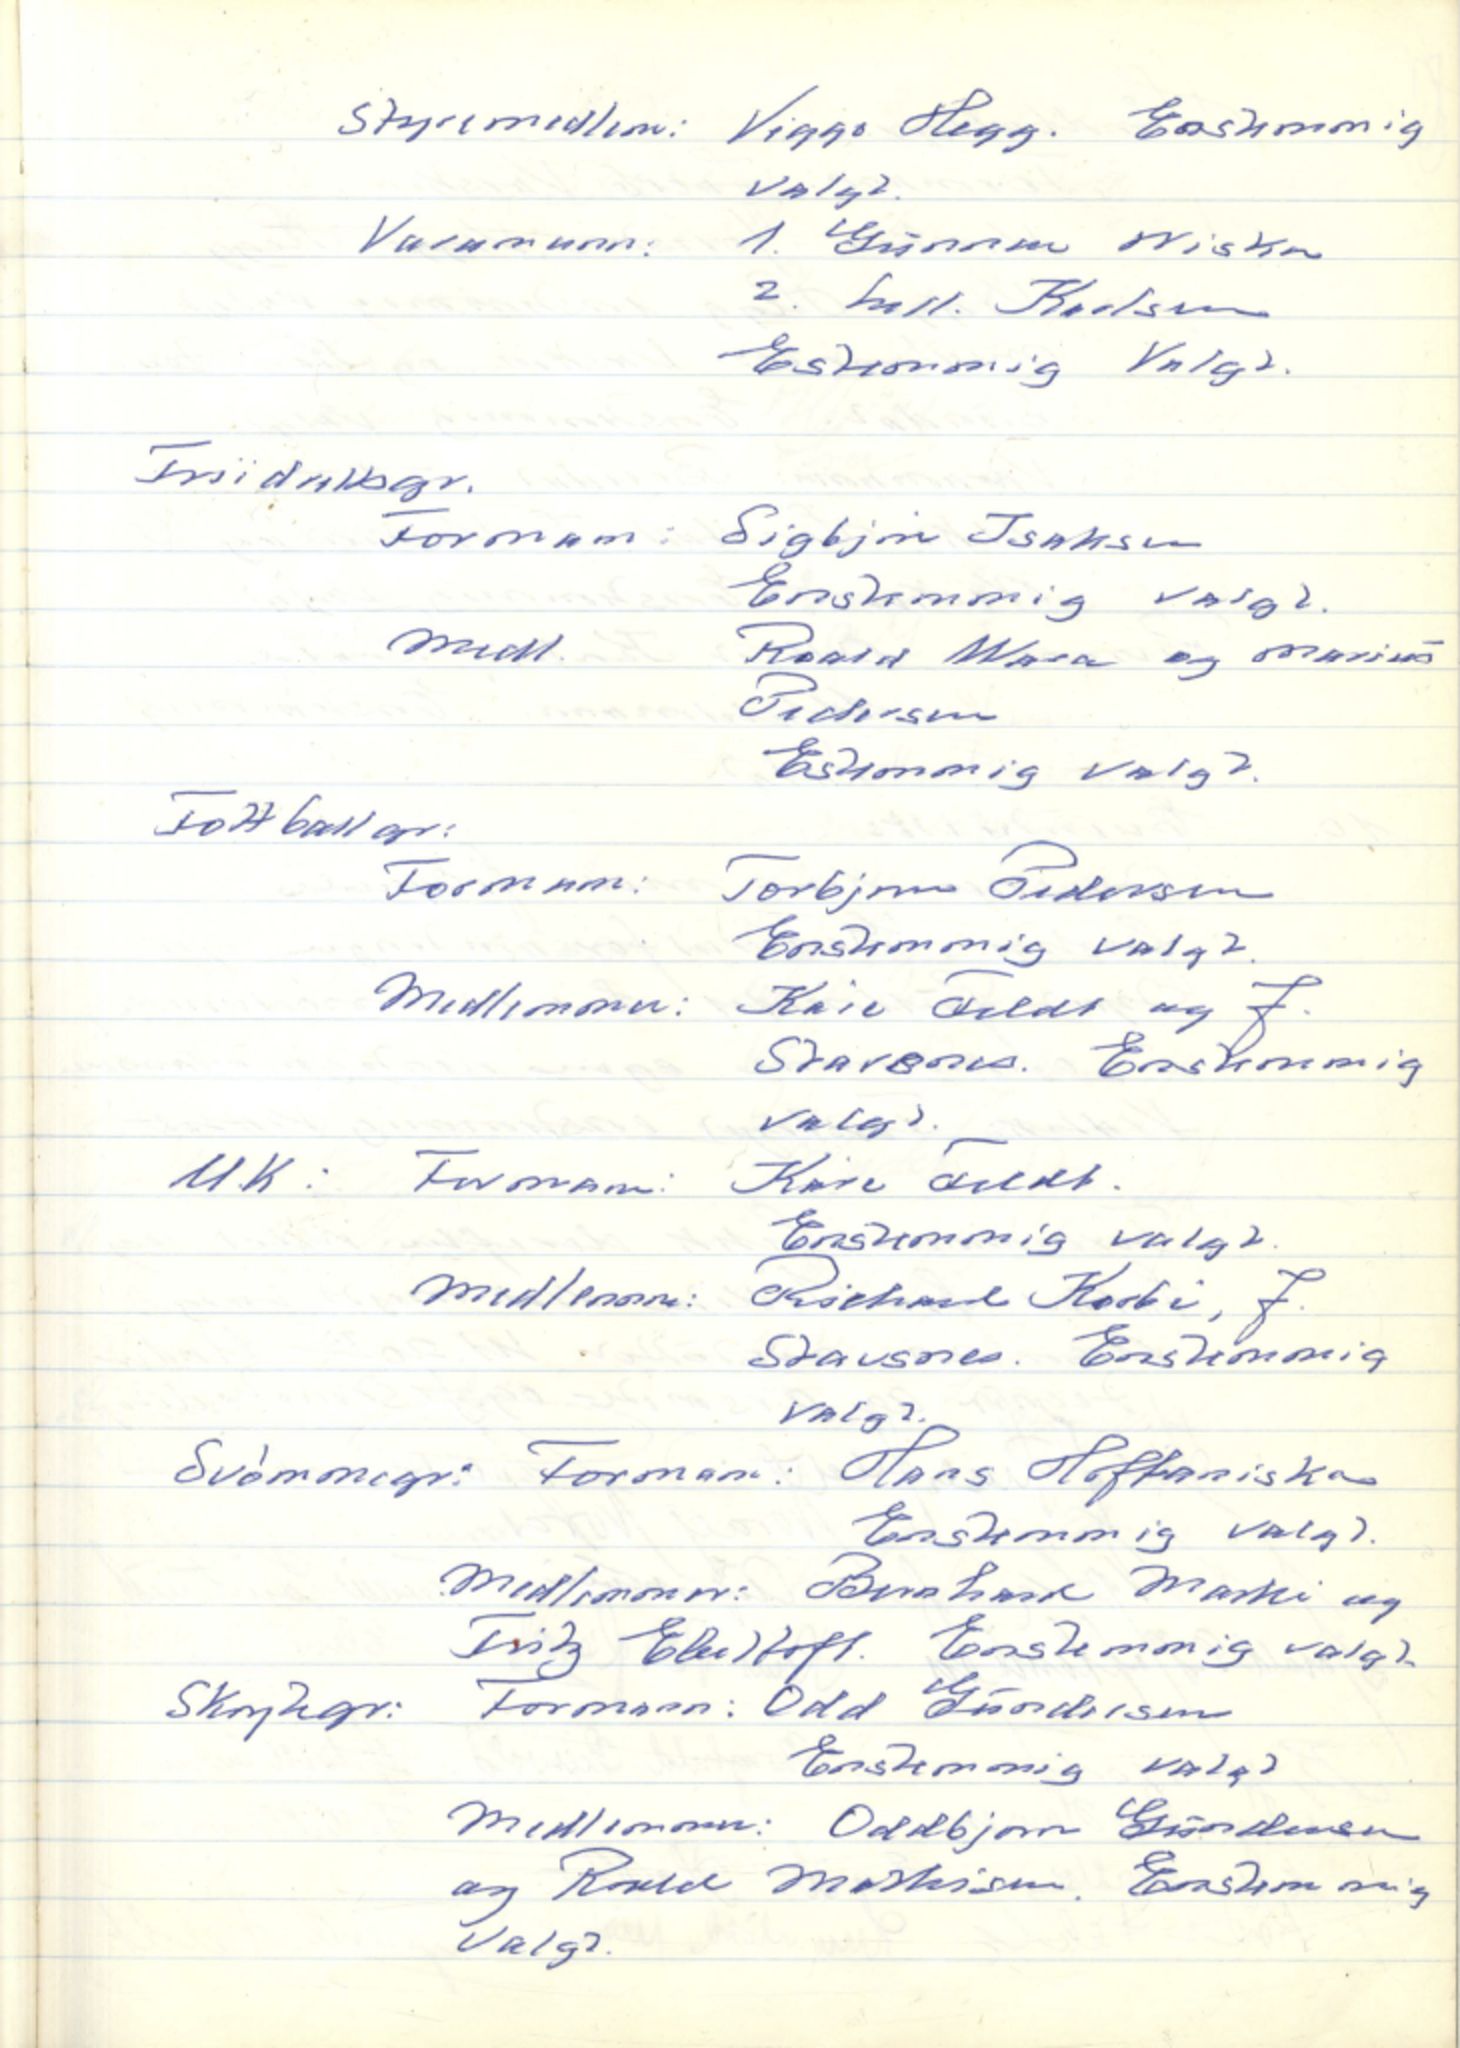 Styremedlem: Viggo Hegg. Enstemmig
valgt.
Varamann: 1. Gunnar Niska
2. Karlsen
Estemmig Valgt.
Friidrettsgr.
Formann: Sigbjørn Isaksen
Enstemmig valgt.
Medl. Roald Wara og Marius
Pedersen
Estemmig valgt.
Fottballgr:
Formann: Torbjørn Pedersen
Enstemmig valgt.
Medlemmer: Kåre Feldt og J.
Stavsnes. Enstemmig
valgt.
U.K: Formann: Kåre Feldt.
Enstemmig valgt.
Medlemm: Richard Korbi, J.
Stavsnes. Enstemmig
valgt.
Svømmegr: Formann: Hans Hoffaniska
Enstemmig valgt.
Medlemmer: Bernhard Marki og
Fritz Ebeltoft. Enstemmig valgt
Skøytegr: Formann: Odd Gundersen
Enstemmig valgt
Medlemmer: Oddbjørn Gundersen
og Roald Mathisen. Enstemmig
Valgt.